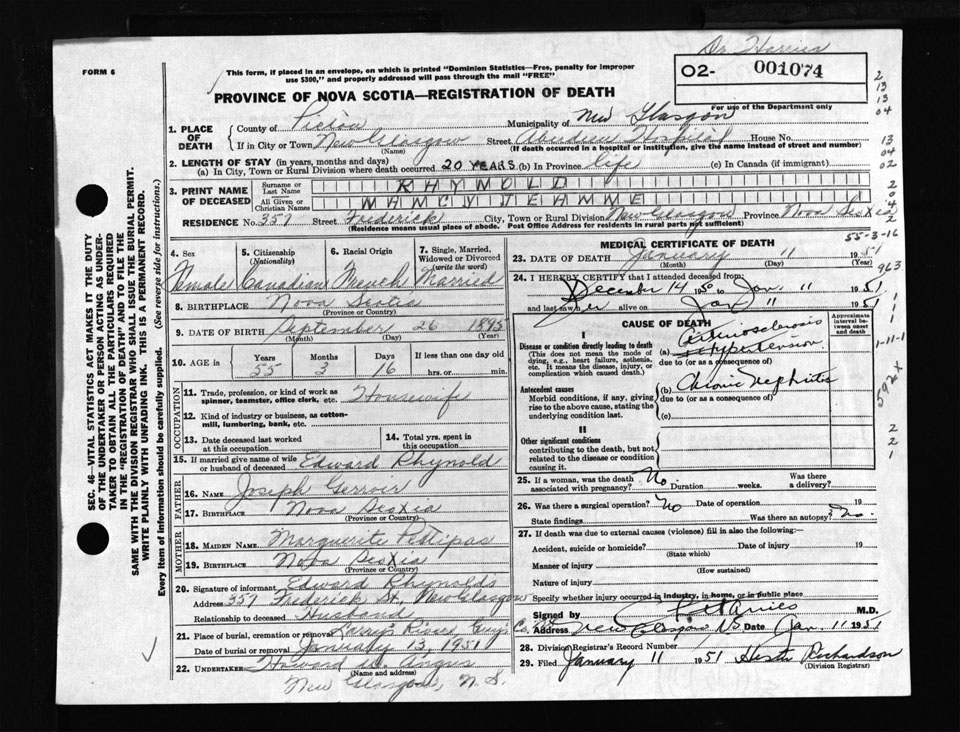 Dr Harries
FORM 6
This form, if placed in an envelope, on which is printed "Dominion Statistics—Free, penalty for improper
use $300," and properly addressed will pass through the mail "FREE"
02- 001074
For use of the Department only
PROVINCE OF NOVA SCOTIA—REGISTRATION OF DEATH
1. PLACE OF DEATH County of Pictou Municipality of New Glasgow
If in City or Town New Glasgow Street Aberdeen Hospital House No.
(Name) (If death occurred in a hospital or institution, give the name instead of street and number)
2. LENGTH OF STAY (in years, months and days)
(a) In City, Town or Rural Division where death occurred 20 YEARS (b) In Province life (c) In Canada (if immigrant)
3. PRINT NAME OF DECEASED Surname or Last Name RHYNOLD
All Given or Christian Names NANCY JEANNE
RESIDENCE No. 357 Street Frederick City, Town or Rural Division New Glasgow Province Nova Scotia
(Residence means usual place of abode. Post Office Address for residents in rural parts not sufficient)
4. Sex Female
5. Citizenship (Nationality) Canadian
6. Racial Origin French
7. Single, Married, Widowed or Divorced (write the word) Married
8. BIRTHPLACE Nova Scotia
(Province or Country)
9. DATE OF BIRTH September 26 1895
(Month) (Day) (Year)
10. AGE in Years 55 Months 3 Days 16 If less than one day old
hrs. or min.
OCCUPATION
11. Trade, profession, or kind of work as spinner, teamster, office clerk, etc. Housewife
12. Kind of industry or business, as cotton-mill, lumbering, bank, etc.
13. Date deceased last worked at this occupation
14. Total yrs. spent in this occupation
15. If married give name of wife or husband of deceased Edward Rhynold
FATHER
16. NAME Joseph Gerroir
17. BIRTHPLACE Nova Scotia
(Province or Country)
MOTHER
18. MAIDEN NAME Marguerite Petipas
19. BIRTHPLACE Nova Scotia
(Province or Country)
20. Signature of informant Edward Rhynolds
Address 357 Frederick St, New Glasgow
Relationship to deceased Husband
21. Place of burial, cremation or removal Larry's River, Guy's Co.
Date of burial or removal January 13, 1951
22. UNDERTAKER Howard W. Angus
(Name and address)
New Glasgow, N. S.
MEDICAL CERTIFICATE OF DEATH
55-3-16
23. DATE OF DEATH January 11 1951
(Month) (Day)
24. I HEREBY CERTIFY that I attended deceased from
December 14 1950 to Jan 11 1951
and last saw her alive on Jan 11 1951
CAUSE OF DEATH
Approximate interval between onset and death
Disease or condition directly leading to death
(This does not mean the mode of dying, e.g., heart failure, asthenia, etc. It means the disease, injury, or complication which caused death.)
(a) Arteriosclerosis & Hypertension
due to (or as a consequence of)
Antecedent causes
Morbid conditions, if any, giving rise to the above cause, stating the underlying condition last.
(b) Chronic Nephritis
due to (or as a consequence of)
(c)
II
Other significant conditions
contributing to the death, but not related to the disease or condition causing it.
25. If a woman, was the death associated with pregnancy? No Duration weeks. Was there a delivery?
26. Was there a surgical operation? No Date of operation 19
State findings Was there an autopsy? No.
27. If death was due to external causes (violence) fill in also the following:
Accident, suicide or homicide? Date of injury 19
(State which)
Manner of injury
(How sustained)
Nature of injury
Specify whether injury occurred in industry, in home, or in public place
Signed by Harries M.D.
Address New Glasgow NS Date Jan. 11 1951
28. Division Registrar's Record Number
29. Filed January 11 1951 Richardson
(Division Registrar)
SEC. 46—VITAL STATISTICS ACT MAKES IT THE DUTY
OF THE UNDERTAKER OR PERSON ACTING AS UNDER-
TAKER TO OBTAIN ALL THE PARTICULARS REQUIRED
IN THE "REGISTRATION OF DEATH" AND TO FILE THE
SAME WITH THE DIVISION REGISTRAR WHO SHALL ISSUE THE BURIAL PERMIT.
WRITE PLAINLY WITH UNFADING INK. THIS IS A PERMANENT RECORD.
Every item of information should be carefully supplied. (See reverse side for instructions.)
2
13
13
04
13
04
02
2
0
4
2
963
1-11-1
592x
2
2
1